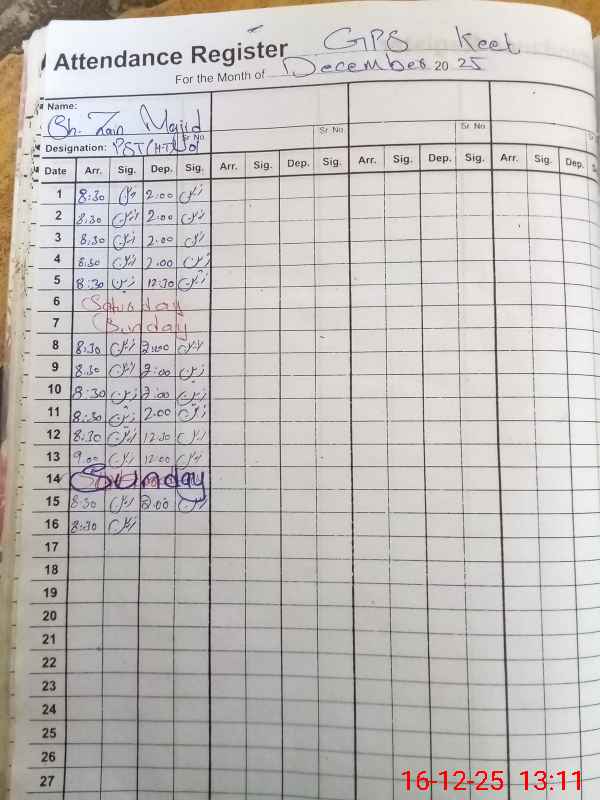 Attendance Register GPS Keet
For the Month of December 2025
Name:
Sh. Zain Majid
Sr No
Sr No
Sr No
Designation: PST (H.T)
Date Arr. Sig. Dep. Sig. Arr. Sig. Dep. Sig. Arr. Sig. Dep. Sig. Arr. Sig. Dep. S
1 8:30 زین 2:00 زین
2 8:30 زین 2:00 زین
3 8:30 زین 2:00 زین
4 8:30 زین 2:00 زین
5 8:30 زین 12:30 زین
6 Saturday
7 Sunday
8 8:30 زین 2:00 زین
9 8:30 زین 2:00 زین
10 8:30 زین 2:00 زین
11 8:30 زین 2:00 زین
12 8:30 زین 12:30 زین
13 9:00 زین 12:00 زین
14 Sunday
15 8:30 زین 2:00 زین
16 8:30 زین
17
18
19
20
21
22
23
24
25
26
27
16-12-25 13:11